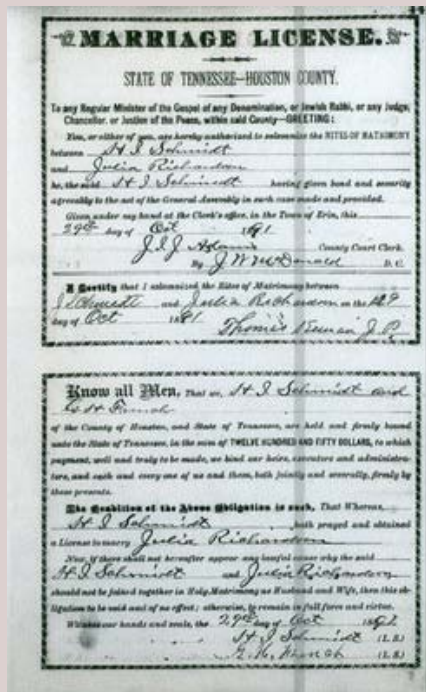 MARRIAGE LICENSE.
STATE OF TENNESSEE—HOUSTON COUNTY.
To any Regular Minister of the Gospel of any Denomination, or Jewish Rabbi, or any Judge,
Chancellor, or Justice of the Peace, within said County—GREETING:
You, or either of you, are hereby authorized to solemnize the RITES OF MATRIMONY
between H I Schmidt
and Julia Richardson
he, the said H I Schmidt having given bond and security
agreeably to the act of the General Assembly in such case made and provided.
Given under my hand at the Clerk's office, in the Town of Erin, this
29th day of Oct 1891
J.I.J Adams County Court Clerk.
By J W McDonald D. C.
I Certify that I solemnized the Rites of Matrimony between
J Schmidt and Julia Richardson on the 29
day of Oct 1891
Thomas J. P.
Know all Men, That we, H I Schmidt and
of the County of Houston, and State of Tennessee, are held and firmly bound
unto the State of Tennessee, in the sum of TWELVE HUNDRED AND FIFTY DOLLARS, to which
payment, well and truly to be made, we bind our heirs, executors and administra-
tors, and each and every one of us and them, both jointly and severally, firmly by
these presents.
The Condition of the Above Obligation is such, That Whereas,
H I Schmidt hath prayed and obtained
a License to marry Julia Richardson
Now, if there shall not hereafter appear any lawful cause why the said
H I Schmidt and Julia Richardson
should not be joined together in Holy Matrimony as Husband and Wife, then this ob-
ligation to be void and of no effect; otherwise, to remain in full force and virtue.
Witness our hands and seals, the 29th day of Oct 1891
H I Schmidt (L.S.)
(L.S.)